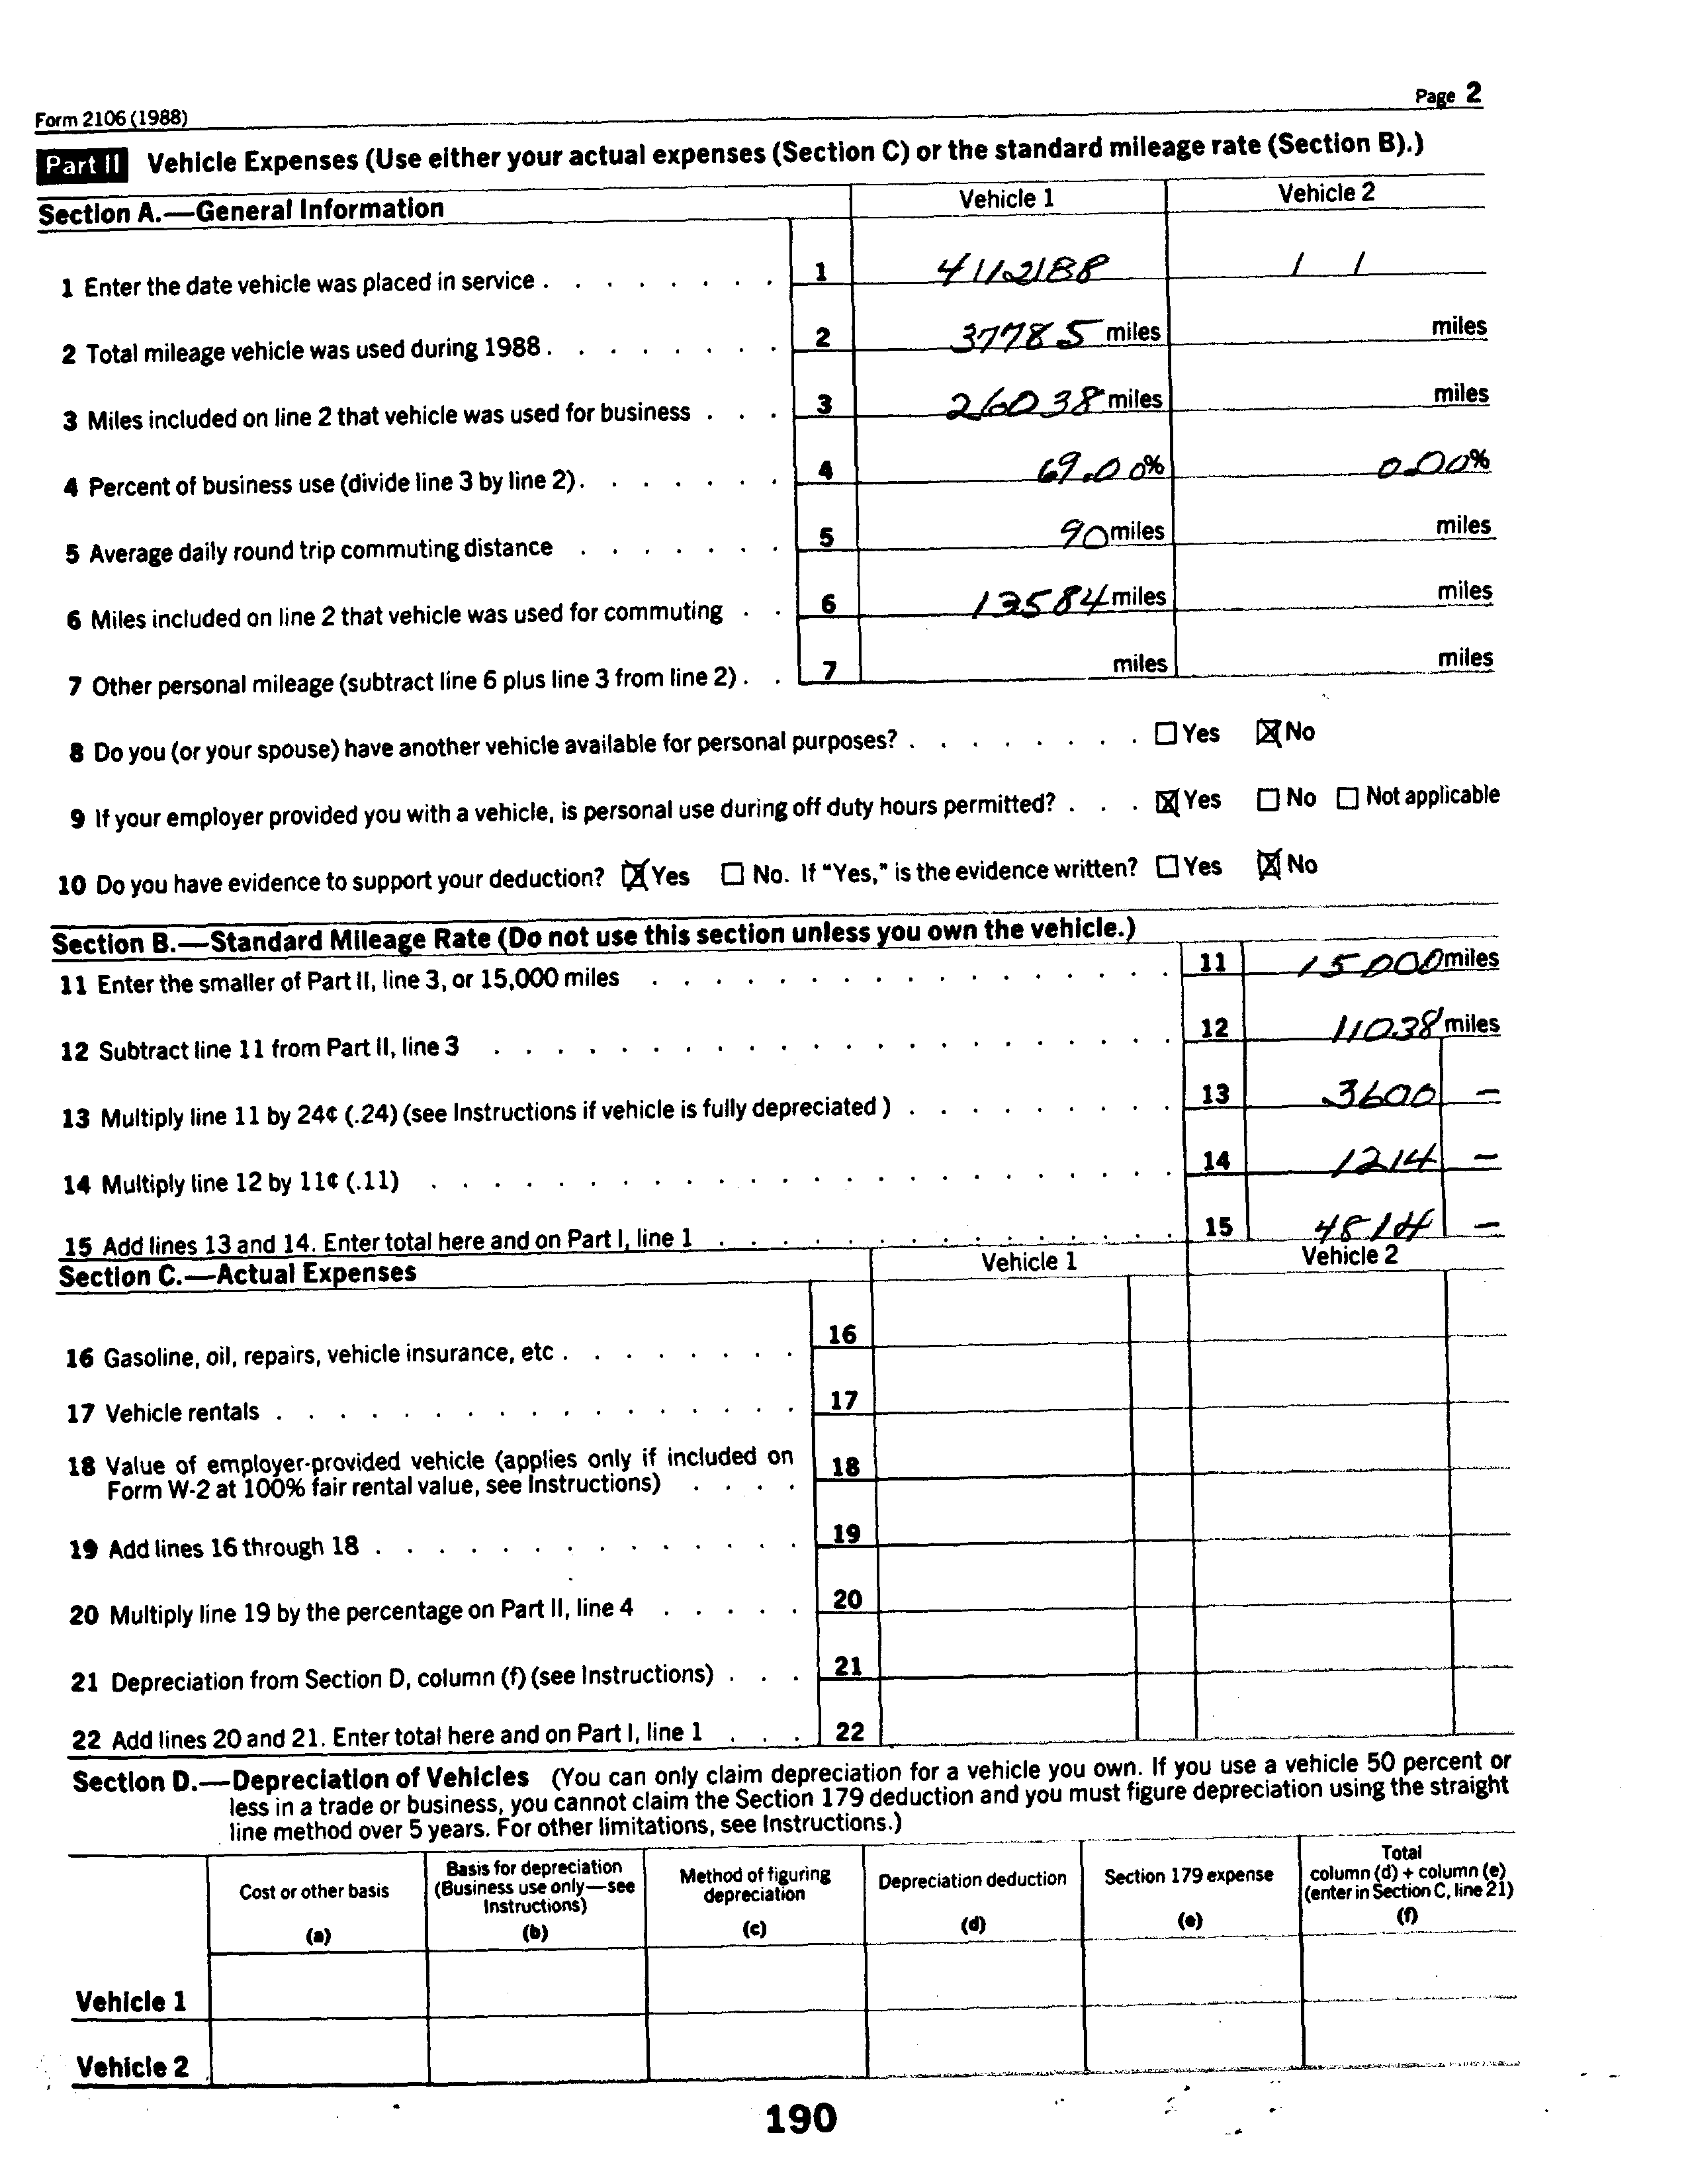 Form 2106 (1988)
Page 2
Part II Vehicle Expenses (Use either your actual expenses (Section C) or the standard mileage rate (Section B).)
Section A.—General Information
Vehicle 1
Vehicle 2
1 Enter the date vehicle was placed in service . . . . . . . . 1 4/12/88 / /
2 Total mileage vehicle was used during 1988 . . . . . . . . 2 37785 miles miles
3 Miles included on line 2 that vehicle was used for business . . . 3 26038 miles miles
4 Percent of business use (divide line 3 by line 2) . . . . . . . 4 69.00% 0.00%
5 Average daily round trip commuting distance . . . . . . . 5 90 miles miles
6 Miles included on line 2 that vehicle was used for commuting . . 6 13584 miles miles
7 Other personal mileage (subtract line 6 plus line 3 from line 2) . . 7 miles miles
8 Do you (or your spouse) have another vehicle available for personal purposes? . . . . . . . . ☐ Yes ☒ No
9 If your employer provided you with a vehicle, is personal use during off duty hours permitted? . . . ☒ Yes ☐ No ☐ Not applicable
10 Do you have evidence to support your deduction? ☒ Yes ☐ No. If "Yes," is the evidence written? ☐ Yes ☒ No
Section B.—Standard Mileage Rate (Do not use this section unless you own the vehicle.)
11 Enter the smaller of Part II, line 3, or 15,000 miles . . . . . . . . . . . . . . . . . 11 15000 miles
12 Subtract line 11 from Part II, line 3 . . . . . . . . . . . . . . . . . . . . . . 12 11038 miles
13 Multiply line 11 by 24¢ (.24) (see Instructions if vehicle is fully depreciated) . . . . . . . . . 13 3600 —
14 Multiply line 12 by 11¢ (.11) . . . . . . . . . . . . . . . . . . . . . . . . 14 1214 —
15 Add lines 13 and 14. Enter total here and on Part I, line 1 . . . . . . . . . . . . . . . 15 4814 —
Section C.—Actual Expenses
Vehicle 1
Vehicle 2
16 Gasoline, oil, repairs, vehicle insurance, etc . . . . . . . . 16
17 Vehicle rentals . . . . . . . . . . . . . . . . . 17
18 Value of employer-provided vehicle (applies only if included on
Form W-2 at 100% fair rental value, see Instructions) . . . . 18
19 Add lines 16 through 18 . . . . . . . . . . . . . . 19
20 Multiply line 19 by the percentage on Part II, line 4 . . . . . 20
21 Depreciation from Section D, column (f) (see Instructions) . . . 21
22 Add lines 20 and 21. Enter total here and on Part I, line 1 . . . 22
Section D.—Depreciation of Vehicles (You can only claim depreciation for a vehicle you own. If you use a vehicle 50 percent or
less in a trade or business, you cannot claim the Section 179 deduction and you must figure depreciation using the straight
line method over 5 years. For other limitations, see Instructions.)
Cost or other basis
(a)
Basis for depreciation
(Business use only—see
Instructions)
(b)
Method of figuring
depreciation
(c)
Depreciation deduction
(d)
Section 179 expense
(e)
Total
column (d) + column (e)
(enter in Section C, line 21)
(f)
Vehicle 1
Vehicle 2
190